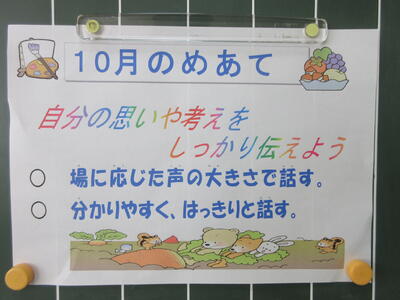 10月のめあて
自分の思いや考えを
しっかり伝えよう
○ 場に応じた声の大きさで話す。
○ 分かりやすく、はっきりと話す。